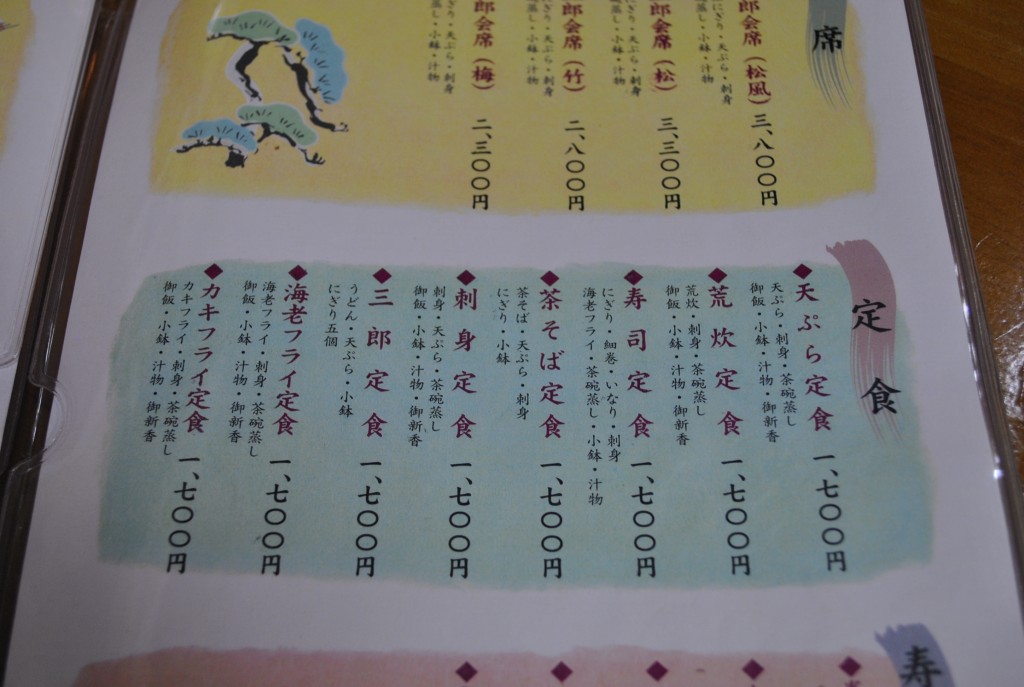 席
郎会席（松風）
にぎり・天ぷら・刺身
蒸し・小鉢・汁物
三、八〇〇円
郎会席（松）
ぎり・天ぷら・刺身
蒸し・小鉢・汁物
三、三〇〇円
郎会席（竹）
ぎり・天ぷら・刺身
蒸し・小鉢・汁物
二、八〇〇円
郎会席（梅）
ぎり・天ぷら・刺身
蒸し・小鉢・汁物
二、三〇〇円
定食
◆天ぷら定食
天ぷら・刺身・茶碗蒸し
御飯・小鉢・汁物・御新香
一、七〇〇円
◆荒炊定食
荒炊・刺身・茶碗蒸し
御飯・小鉢・汁物・御新香
一、七〇〇円
◆寿司定食
にぎり・細巻・いなり・刺身
海老フライ・茶碗蒸し・小鉢・汁物
一、七〇〇円
◆茶そば定食
茶そば・天ぷら・刺身
にぎり・小鉢
一、七〇〇円
◆刺身定食
刺身・天ぷら・茶碗蒸し
御飯・小鉢・汁物・御新香
一、七〇〇円
◆三郎定食
うどん・天ぷら・小鉢
にぎり五個
一、七〇〇円
◆海老フライ定食
海老フライ・刺身・茶碗蒸し
御飯・小鉢・汁物・御新香
一、七〇〇円
◆カキフライ定食
カキフライ・刺身・茶碗蒸し
御飯・小鉢・汁物・御新香
一、七〇〇円
寿